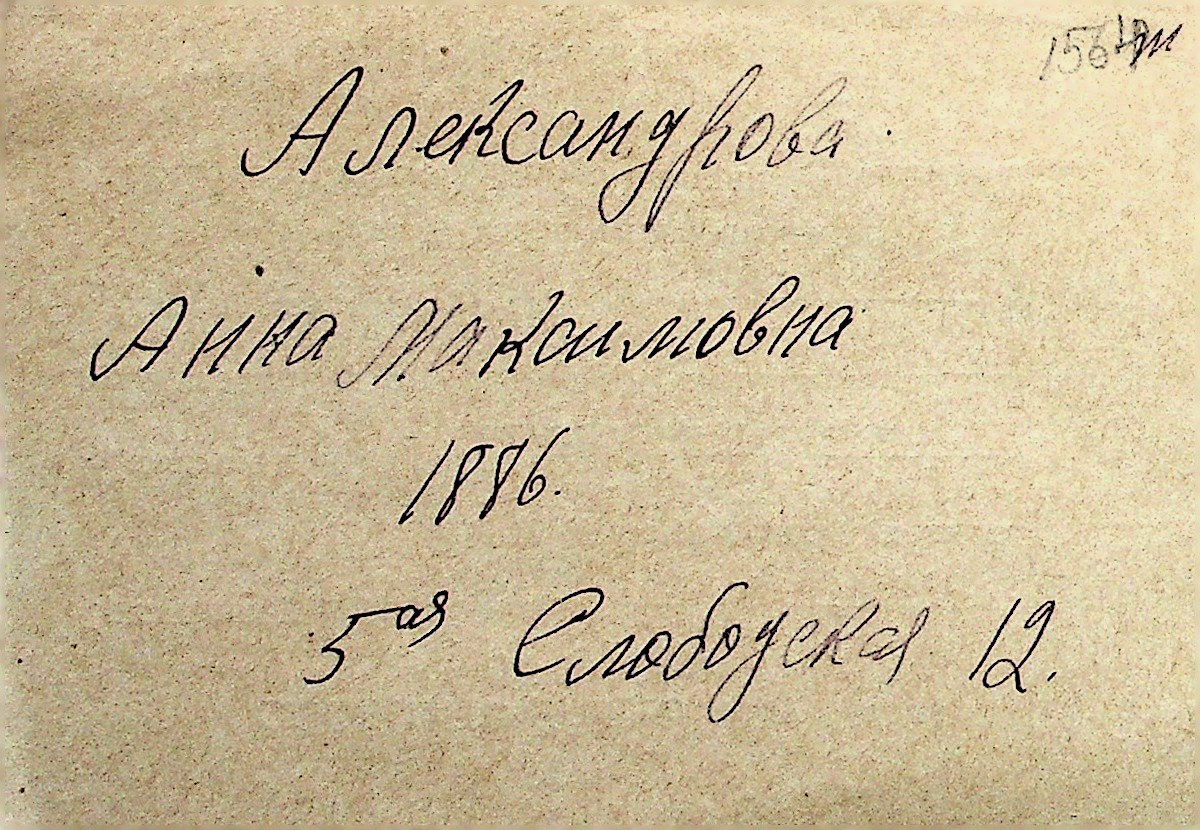 Александрова.
Анна Максимовна
1886.
5ая Слободская 12.